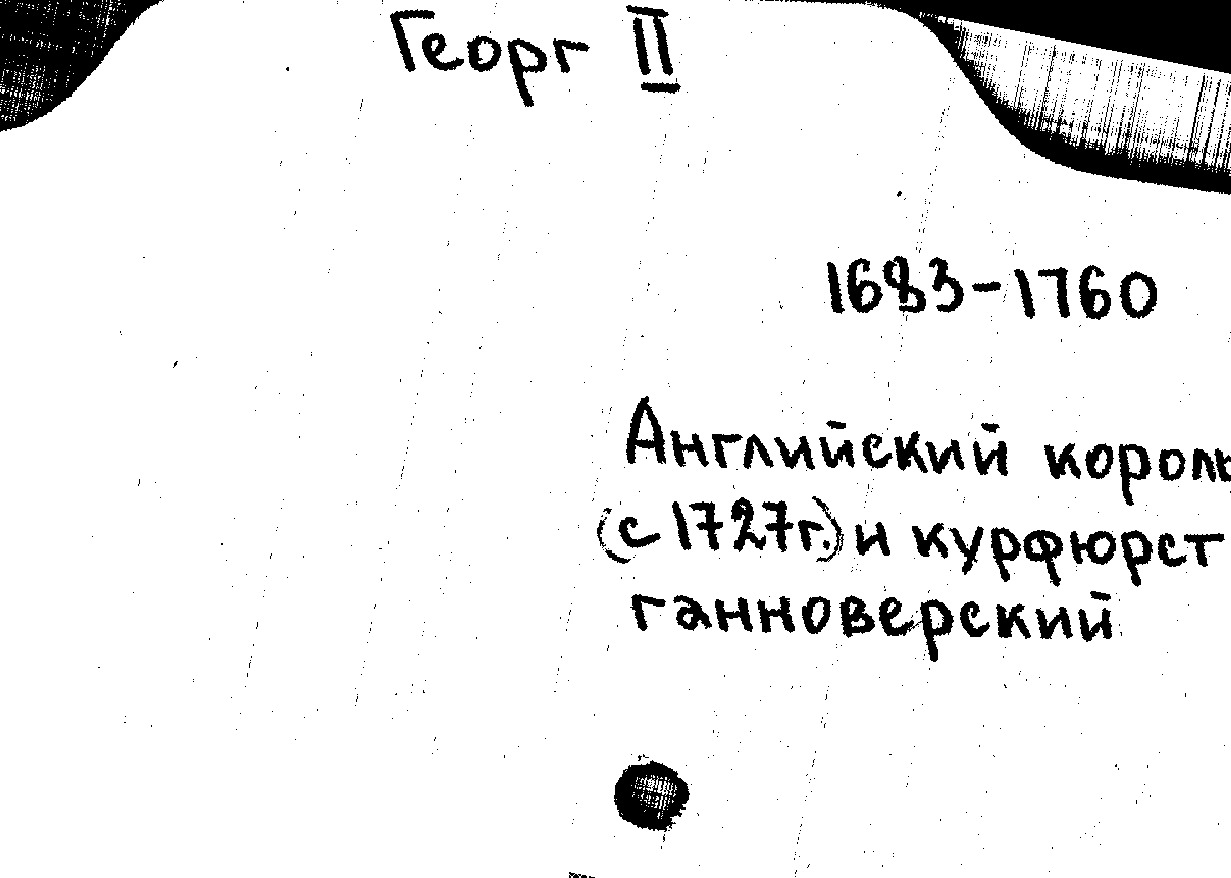 Георг II
1683-1760
Английский король
(с 1727г.) и курфюрст
ганноверский